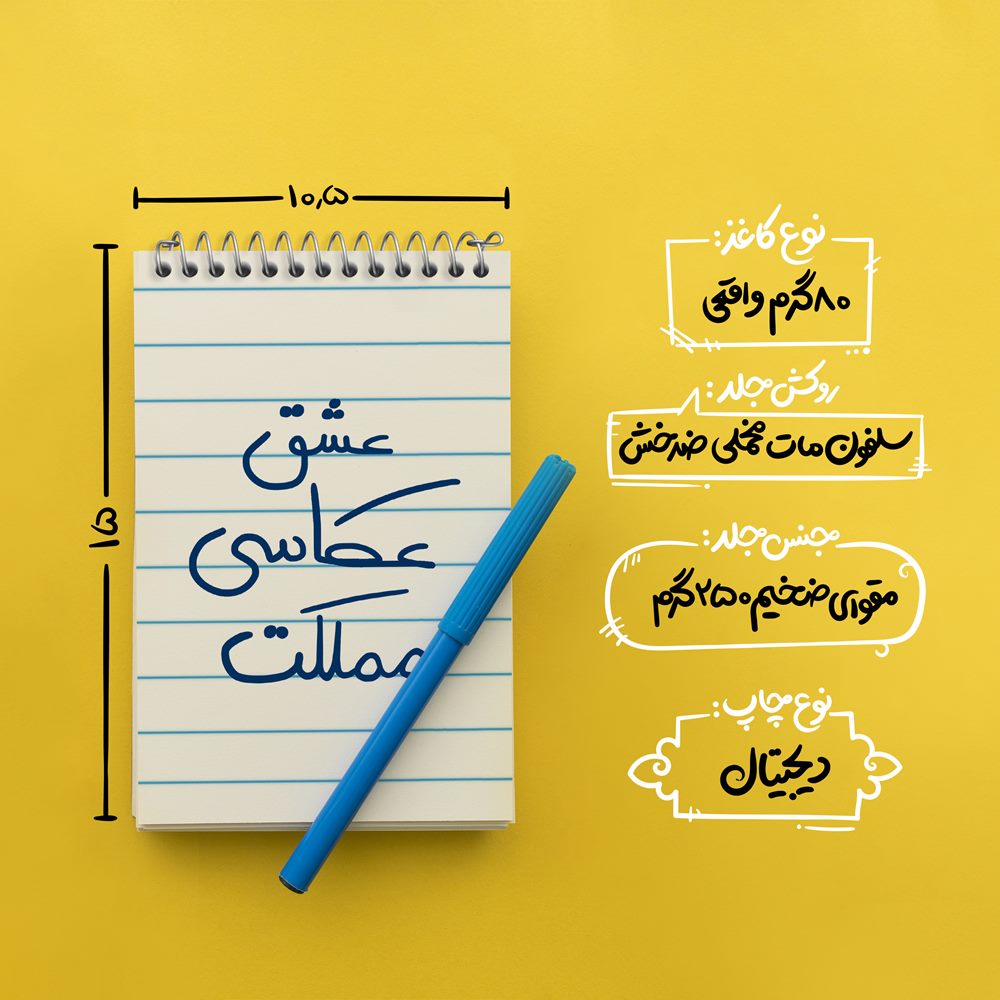 ۱۰٫۵
۱۵
عشق
عکاسی
مملکت
نوع کاغذ:
۸۰گرم واقعی
روکش جلد:
سلفون مات مخملی ضدخش
جنس جلد:
مقوای ضخیم ۲۵۰گرم
نوع چاپ:
دیجیتال